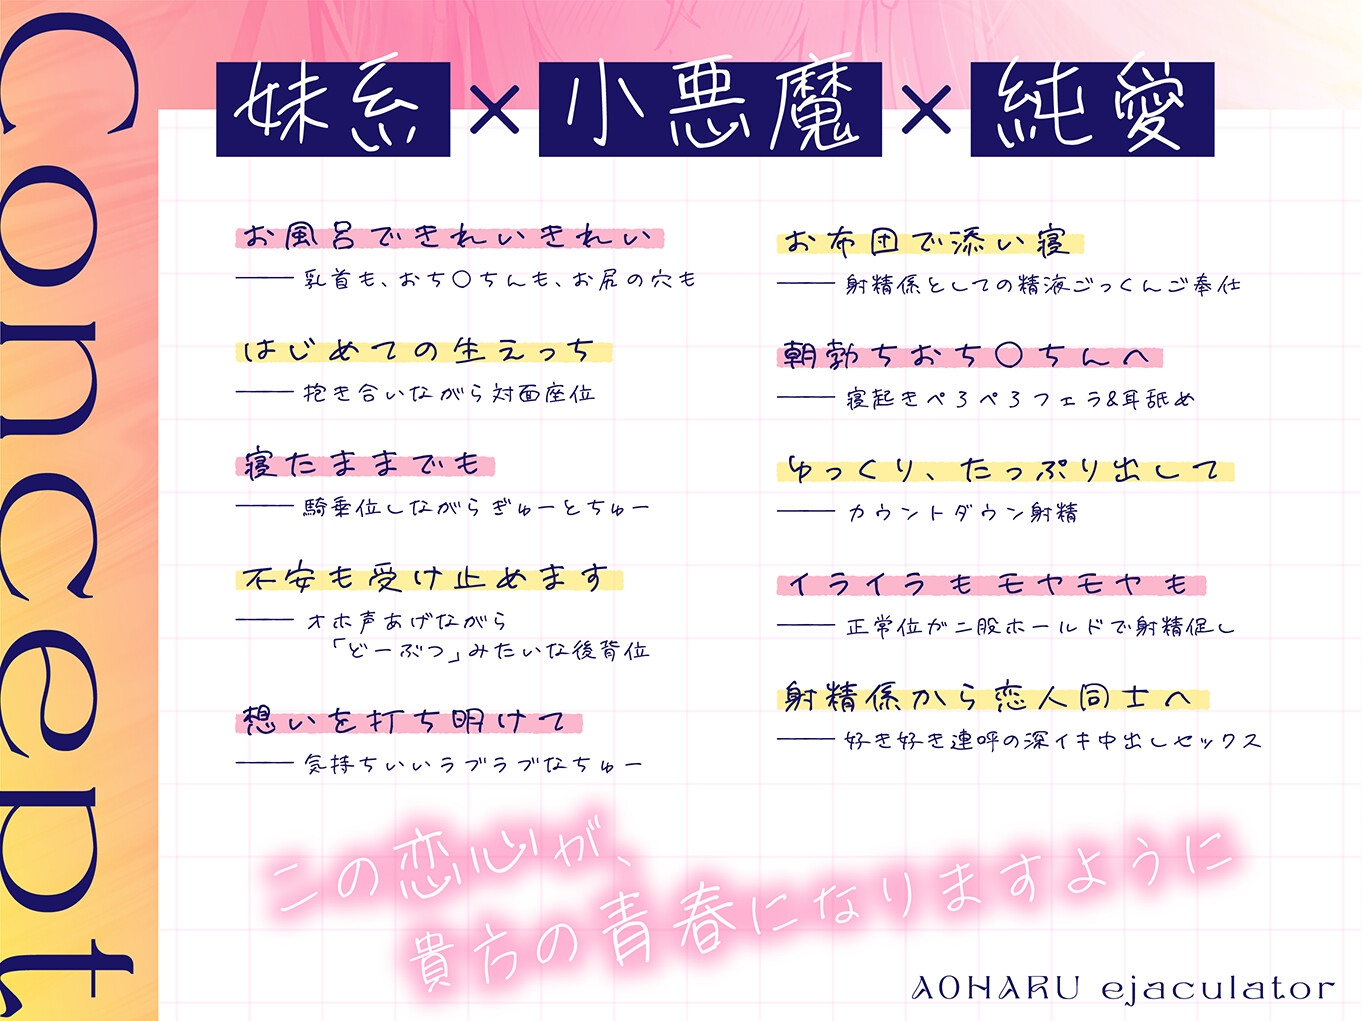 Concept
妹系×小悪魔×純愛
お風呂できれいきれい
――乳首も、おち〇ちんも、お尻の穴も
はじめての生えっち
――抱き合いながら対面座位
寝たままでも
――騎乗位しながらぎゅーとちゅー
不安も受け止めます
――オホ声あげながら
「どーぶつ」みたいな後背位
想いを打ち明けて
――気持ちいいラブラブなちゅー
お布団で添い寝
――射精係としての精液ごっくんご奉仕
朝勃ちおち〇ちんへ
――寝起きぺろぺろフェラ&耳舐め
ゆっくり、たっぷり出して
――カウントダウン射精
イライラもモヤモヤも
――正常位がニ股ホールドで射精促し
射精係から恋人同士へ
――好き好き連呼の深イキ中出しセックス
この恋心が、
貴方の青春になりますように
AOHARU ejaculator